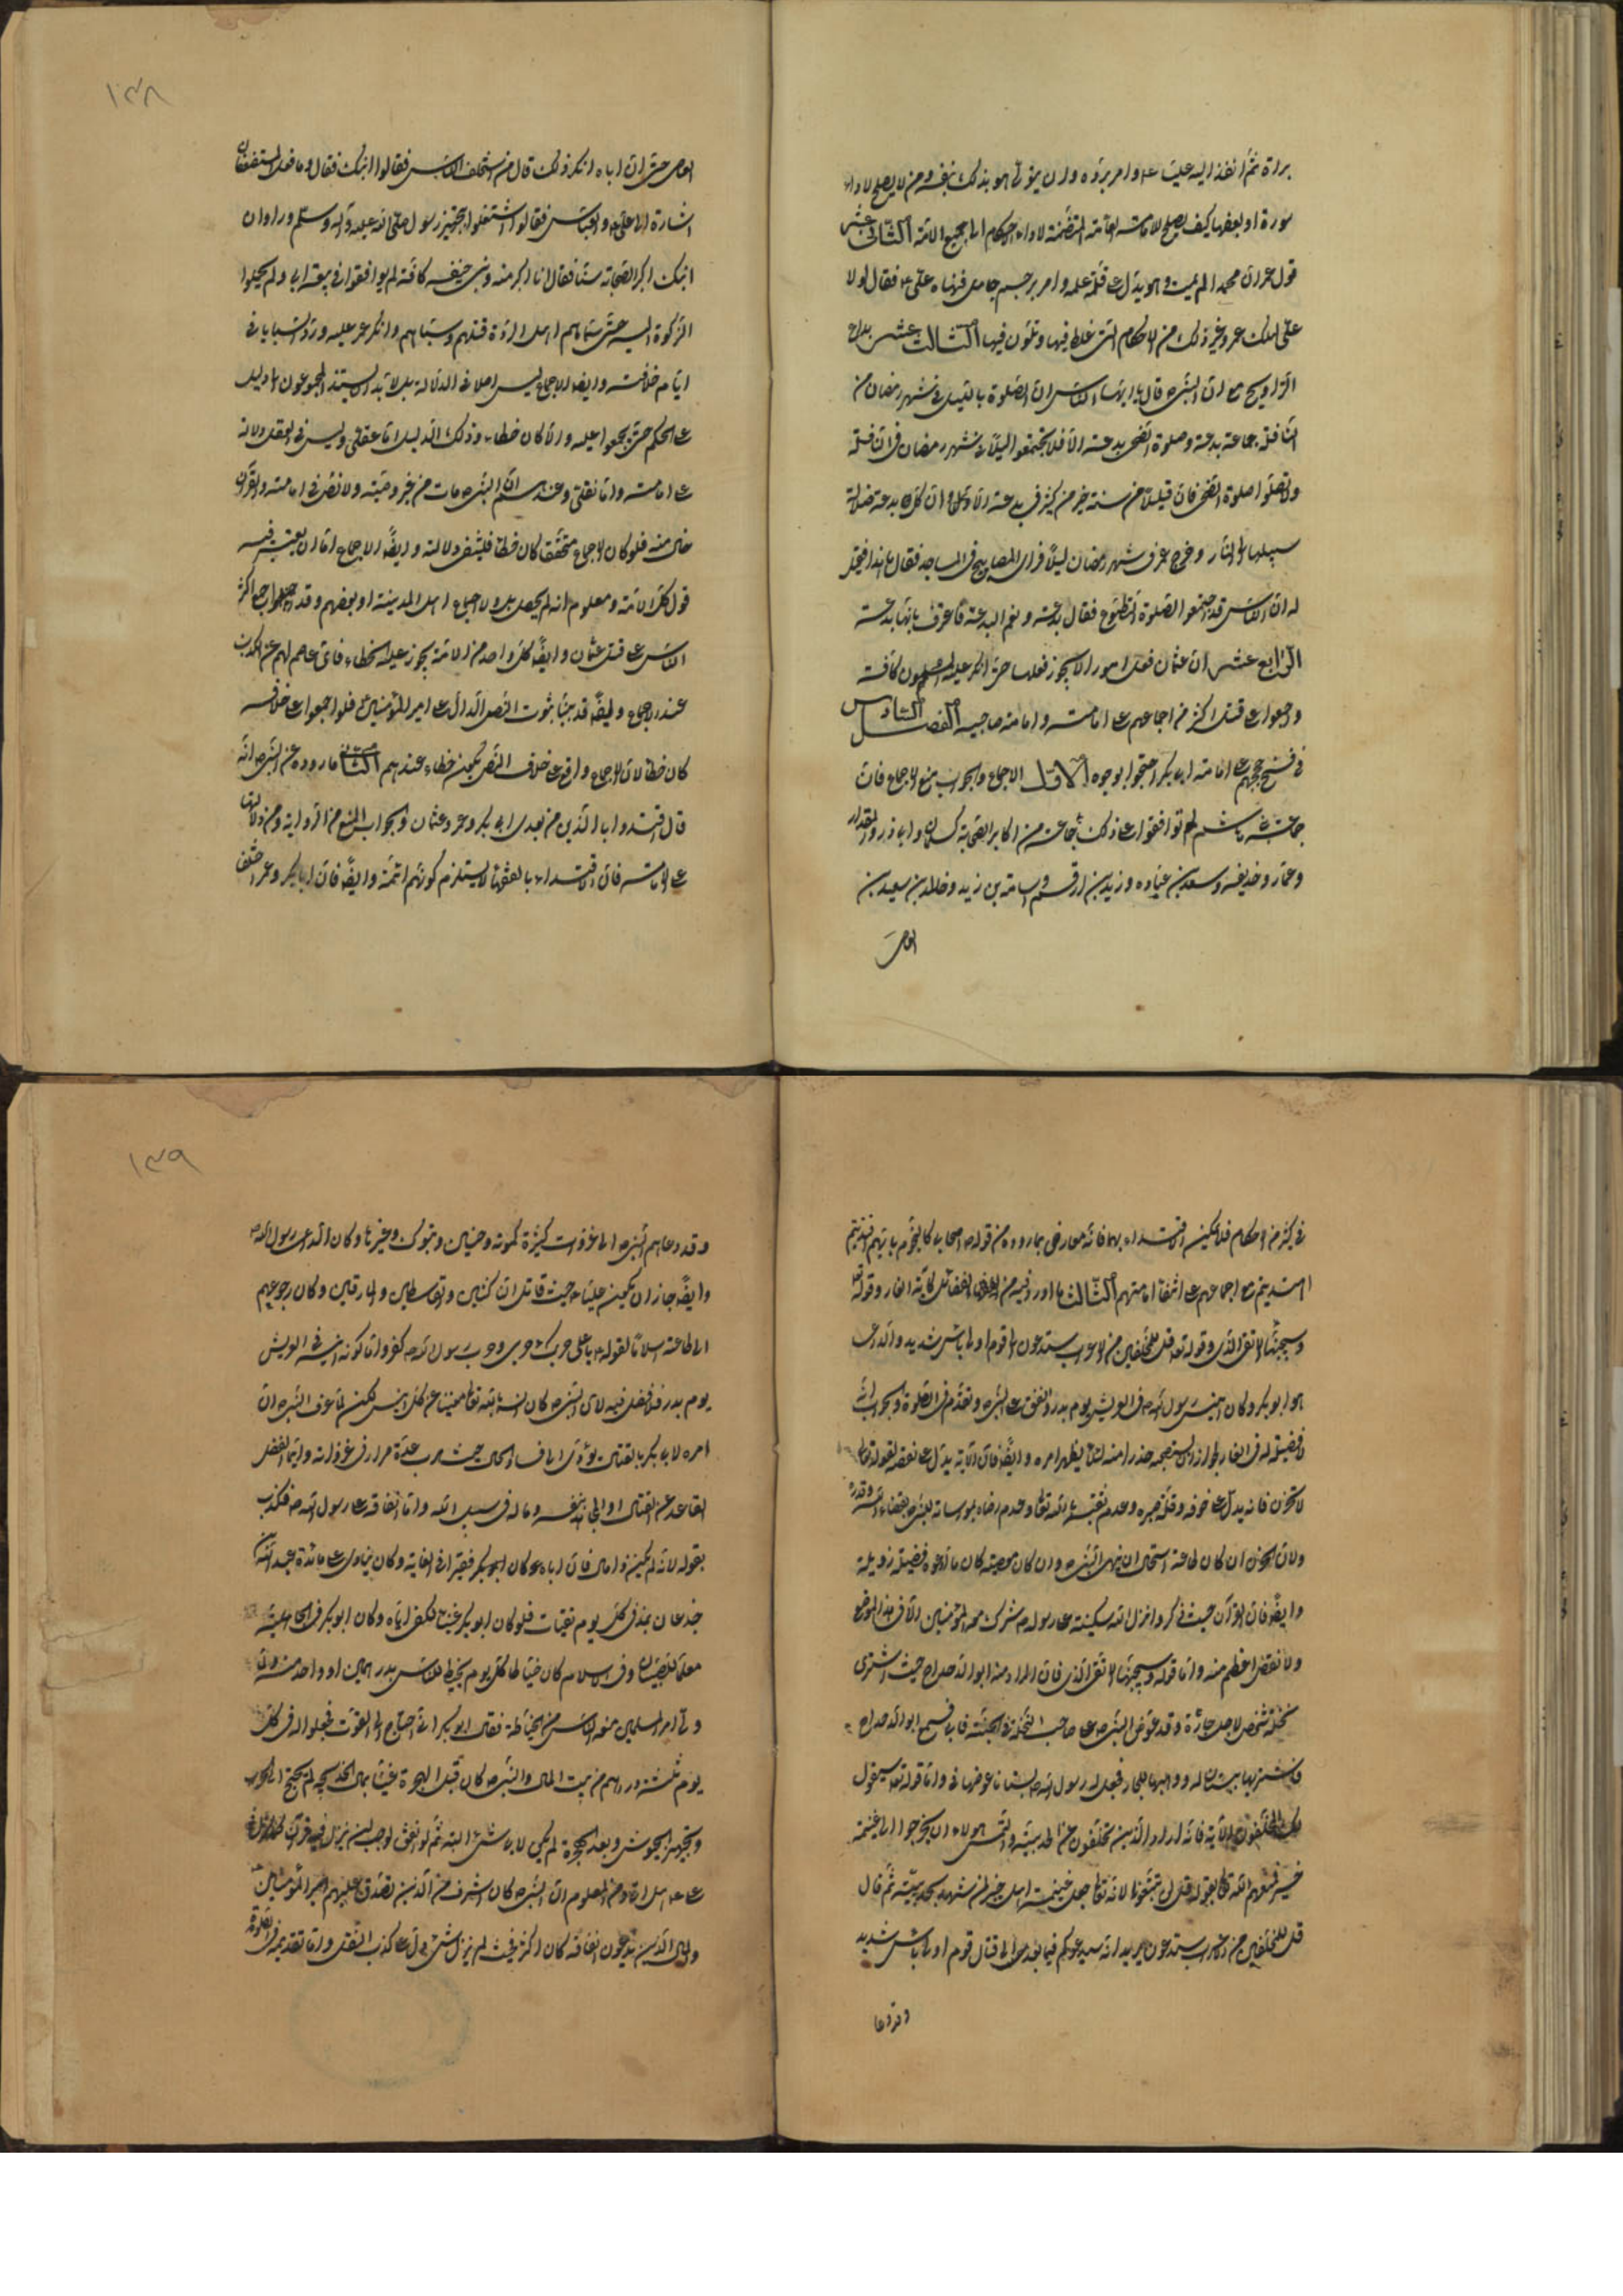 براءة ثم انفذ اليه عليا ع وامر برده وان يتولى هو ذلك بنفسه ومن لا يصلح لاداء
سورة او بعضها كيف يصلح للامامة العامة المتضمنة لاداء الاحكام الى جميع الامة الثانى عشر
قول عمر ان محمدا لم يمت وهو يدل على قلة علمه وامر برجم حامل فنهاه على ع فقال لولا
على لهلك عمر وغير ذلك من الاحكام التى غلط فيها وتلون فيها الثالث عشر ابداع
التراويح مع ان النبى ص قال يا ايها الناس ان الصلوة بالليل فى شهر رمضان من
النافلة جماعة بدعة وصلوة الضحى بدعة الا فلا تجتمعوا ليلا فى شهر رمضان فى النافلة
ولا تصلوا صلوة الضحى فان قليلا من سنة خير من كثير فى بدعة الا وان كل بدعة ضلالة
سبيلها الى النار وخرج عمر فى شهر رمضان ليلا فراى المصابيح فى المساجد فقال ما هذا فقيل
له ان الناس قد اجتمعوا لصلوة التطوع فقال بدعة ونعم البدعة فاعترف بانها بدعة
الرابع عشر ان عثمان فعل امورا لا يجوز فعلها حتى انكر عليه المسلمون كافة
واجمعوا على قتله اكثر من اجماعهم على امامته وامامة صاحبيه الفصل السادس
فى فسخ حججهم على امامة ابى بكر احتجوا بوجوه الاول الاجماع والجواب منع الاجماع فان
جماعة بنى هاشم لم توافقوا على ذلك وجماعة من اكابر الصحابة كسلمان وابى ذر والمقداد
وعمار وحذيفة وسعد بن عبادة وزيد بن ارقم واسامة بن زيد وخالد بن سعيد بن
العاص
١٣٨
العاص حتى ان اباه انكر ذلك قال من استخلف الناس فقالوا ابنك فقال وما فعل المستضعفان
اشارة الى على ع والعباس فقالوا اشتغلوا بتجهيز رسول الله صلى الله عليه وآله وسلم ورأوا ان
ابنك اكبر الصحابة سنا فقال انا اكبر منه وبنى حنيفة كافة لم يوافقوا فى بيعته ابى ولم يحملوا
الزكوة اليه حتى سماهم اهل الردة وقتلهم وسباهم وانكر عمر عليه ورد السبايا فى
ايام خلافته وايضا الاجماع ليس اصلا فى الدلالة بل لا بد ان يستند المجمعون الى دليل
على الحكم حتى يجمعوا عليه والا كان خطاء وذلك الدليل اما عقلى وليس فى العقل دلالة
على امامته واما نقلى وعندهم ان النبى ص مات من غير وصية ولا نص فى امامته والقرآن
خال منه فلو كان الاجماع متحققا كان خطا فينتفى دلالته وايضا الاجماع اما ان يعتبر فيه
قول كل الامة ومعلوم انه لم يحصل بل ولا اجماع اهل المدينة او بعضهم وقد اجمع اكثر
الناس على قتل عثمان وايضا كل واحد من الامة يجوز عليه الخطاء فاى عاصم لهم عن الكذب
عند الاجماع وايضا قد بينا ثبوت النص الدال على امير المؤمنين فلو اجمعوا على خلافه
كان خطا لان الاجماع الواقع على خلاف النص يكون خطاء عندهم الثانى ما رووه عن النبى ص انه
قال اقتدوا بالذين من بعدى ابى بكر وعمر وعثمان والجواب المنع من الرواية ومن دلالتها
على الامامة فان الاقتداء بالفقهاء لا يستلزم كونهم ائمة وايضا فان ابا بكر وعمر اختلفا
فى كثير من الاحكام فلا يمكن الاقتداء بهما فانه معارض بما رووه من قوله ص اصحابى كالنجوم بايهم اقتديتم
اهتديتم مع اجماعهم على انتفاء امامتهم الثالث ما ورد فيه من الفضائل كآية الغار وقوله تعالى
وسيجنبها الاتقى الذى وقوله تعالى قل للمخلفين من الاعراب ستدعون الى قوم اولى باس شديد والداعى
هو ابو بكر وكان انيس رسول الله ص فى العريش يوم بدر وانفق على النبى ص وتقدم فى الصلوة والجواب انه
لا فضيلة له فى الغار لجواز ان يستصحبه حذرا منه لئلا يظهر امره وايضا فان الآية تدل على نقصه لقوله تعالى
لا تحزن فانه يدل على خوفه وقلة صبره وعدم يقينه بالله تعالى وعدم رضاه بمواساته النبى ص بقضاء الله وقدره
ولان الحزن ان كان طاعة استحال ان ينهى النبى ص وان كان معصية كان ما ادعوه فضيلة رذيلة
وايضا فان القرآن حيث ذكر انزال الله سكينته على رسوله ص شرك معه المؤمنين الا فى هذا الموضع
ولا نقص اعظم منه واما قوله وسيجنبها الاتقى الذى فان المراد منه ابو الدحداح حيث اشترى
نخلة شخص لاجل جاره وقد عرض النبى ص على صاحب النخلة نخلة فى الجنة فابى فسمع ابو الدحداح
فاشتراها ببستان له ووهبها للجار فجعل له رسول الله ص بستانا عوضها فى واما قوله تعالى سيقول
لك المخلفون الآية فانه اراد الذين تخلفون عن الحديبية والتمس هؤلاء ان يخرجوا الى غنيمة
خيبر فمنعهم الله تعالى بقوله قل لن تتبعونا لانه تعالى جعل غنيمة اهل خيبر لمن شهد الحديبية ثم قال
قل للمخلفين من الاعراب ستدعون يريد انه سيدعوكم فيما بعد الى قتال قوم اولى باس شديد
وقد دعا
١٣٩
وقد دعاهم النبى ص الى غزوات كثيرة كموتة وحنين وتبوك وغيرها وكان الداعى رسول الله ص
وايضا جاز ان يكون عليا ع حيث قاتل الناكثين والقاسطين والمارقين وكان رجوعهم
الى طاعته اسلاما لقوله ع يا على حربك حربى وحرب رسول الله ص كفر واما كونه انيسه فى العريش
يوم بدر فلا فضل فيه لان النبى ص كان انسه بالله تعالى مغنيا عن كل انيس لكن لما عرف النبى ص ان
امره لابى بكر بالقتال يؤدى الى فساد الحال حيث هرب عدة مرار فى غزواته وايما افضل
القاعد عن القتال او المجاهد بنفسه وماله فى سبيل الله واما انفاقه على رسول الله ص فكذب
بقوله لانه لم يكن ذا مال فان اباه كان فقيرا فى الغاية وكان ينادى على مائدة عبد الله بن
جدعان بمد فى كل يوم يقتات فلو كان ابو بكر غنيا لكفى اباه وكان ابو بكر فى الجاهلية
معلما للصبيان وفى الاسلام كان خياطا كل يوم يخيط للناس بدرهمين او واحد ولما
ولى امر المسلمين منعه الناس من الخياطة فقال ابو بكر انى احتاج الى القوت فجعلوا له فى كل
يوم ثلثة دراهم من بيت المال والنبى ص كان قبل الهجرة غنيا بمال خديجة لم يحتج الى الحرب
وتجهيز الجيوش وبعد الهجرة لم يكن لابى بكر شىء البتة ثم لو انفق لوجب ان ينزل فيه قرآن كما نزل فى
على ع هل اتى ومن المعلوم ان النبى ص كان اشرف من الذين تصدق عليهم امير المؤمنين
والمال الذى يدعون انفاقه كان اكثر فحيث لم ينزل شىء دل على كذب النقل واما تقديمه فى الصلوة